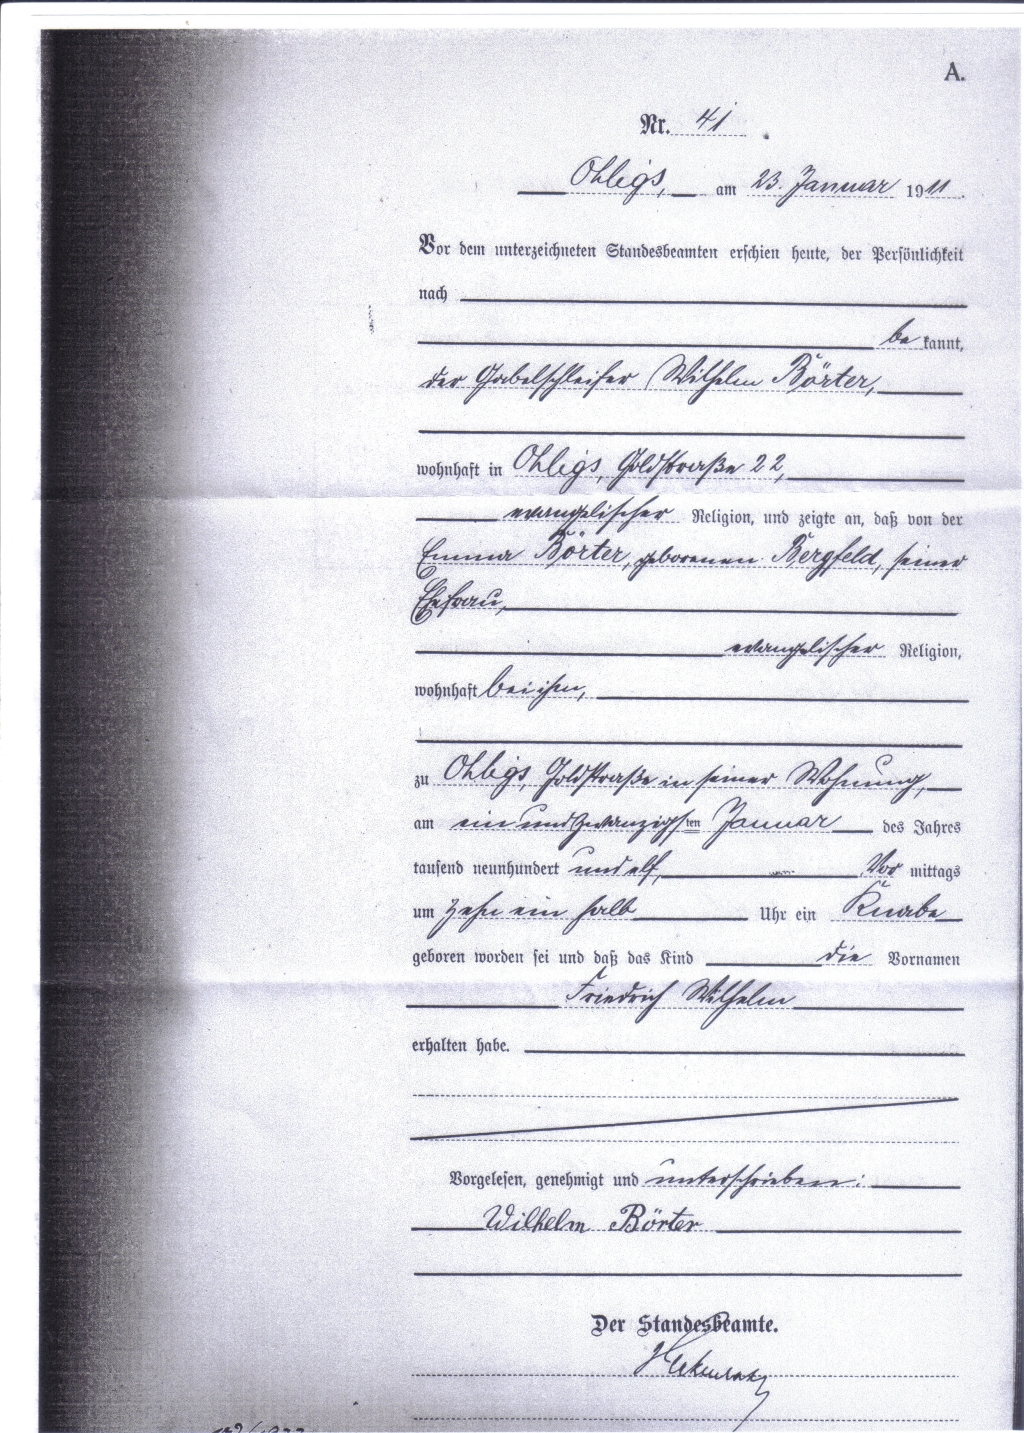 A.
Nr. 41
Ohligs, am 23. Januar 1911.
Vor dem unterzeichneten Standesbeamten erschien heute, der Persönlichkeit
nach
be kannt,
der Gabelschleifer Wilhelm Börter,
wohnhaft in Ohligs, Goldstraße 22,
evangelischer Religion, und zeigte an, daß von der
Emma Börter, geborenen Bergfeld, seiner
Ehefrau,
evangelischer Religion,
wohnhaft bei ihm,
zu Ohligs, Goldstraße in seiner Wohnung,
am ein und zwanzigsten Januar des Jahres
tausend neunhundert und elf, Vor mittags
um zehn ein halb Uhr ein Knabe
geboren worden sei und daß das Kind die Vornamen
Friedrich Wilhelm
erhalten habe.
Vorgelesen, genehmigt und unterschrieben:
Wilhelm Börter
Der Standesbeamte.